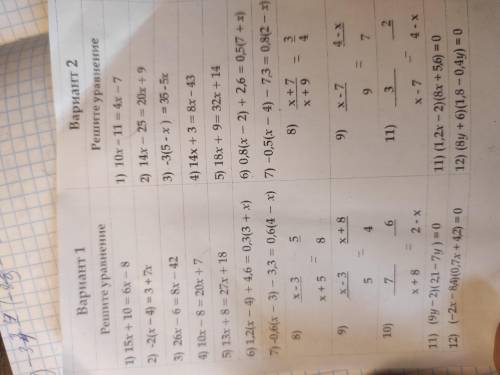 Вариант 1
Решите уравнение
1) 15x + 10 = 6x − 8
2) -2(x − 4) = 3 + 7x
3) 26x − 6 = 8x − 42
4) 10x − 8 = 20x + 7
5) 13x + 8 = 27x + 18
6) 1,2(x − 4) + 4,6 = 0,3(3 + x)
7) −0,6(x − 3) − 3,3 = 0,6(4 − x)
8) x - 3 5
=
x + 5 8
9) x - 3 x + 8
=
5 4
10) 7 6
=
x + 8 2 - x
11) (9y − 2)(2,1 − 7y) = 0
12) (−2x − 8,4)(0,7x + 4,2) = 0
Вариант 2
Решите уравнение
1) 10x − 11 = 4x − 7
2) 14x − 25 = 20x + 9
3) -3(5 - x) = 35 - 5x
4) 14x + 3 = 8x - 43
5) 18x + 9 = 32x + 14
6) 0,8(x − 2) + 2,6 = 0,5(7 + x)
7) −0,5(x − 4) − 7,3 = 0,8(2 − x)
8) x + 7 3
=
x + 9 4
9) x - 7 4 - x
=
9 7
11) 3 2
=
x - 7 4 - x
11) (1,2x − 2)(8x + 5,6) = 0
12) (8y + 6)(1,8 − 0,4y) = 0